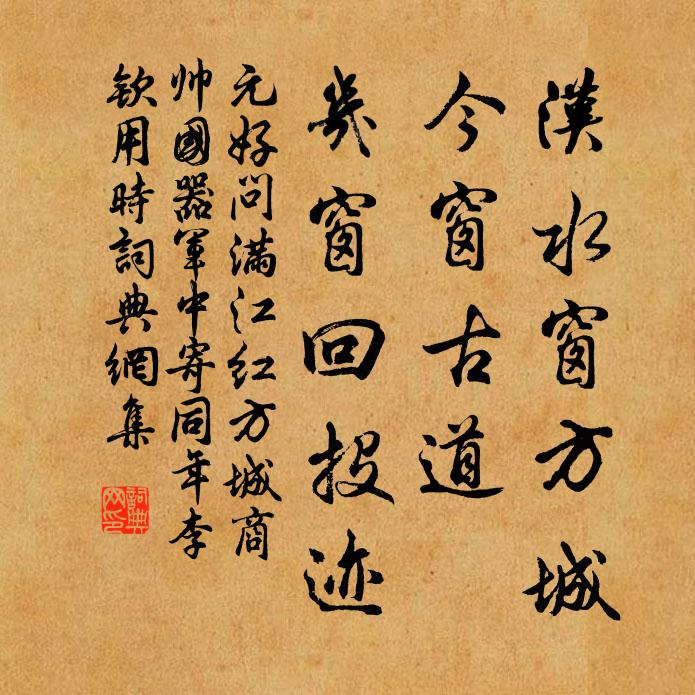 漢水窗方城
今窗古道
幾窗回投迹
元好問满江红方城商
帅國器军中寄同年李
钦用時詞典網集
詞典网印